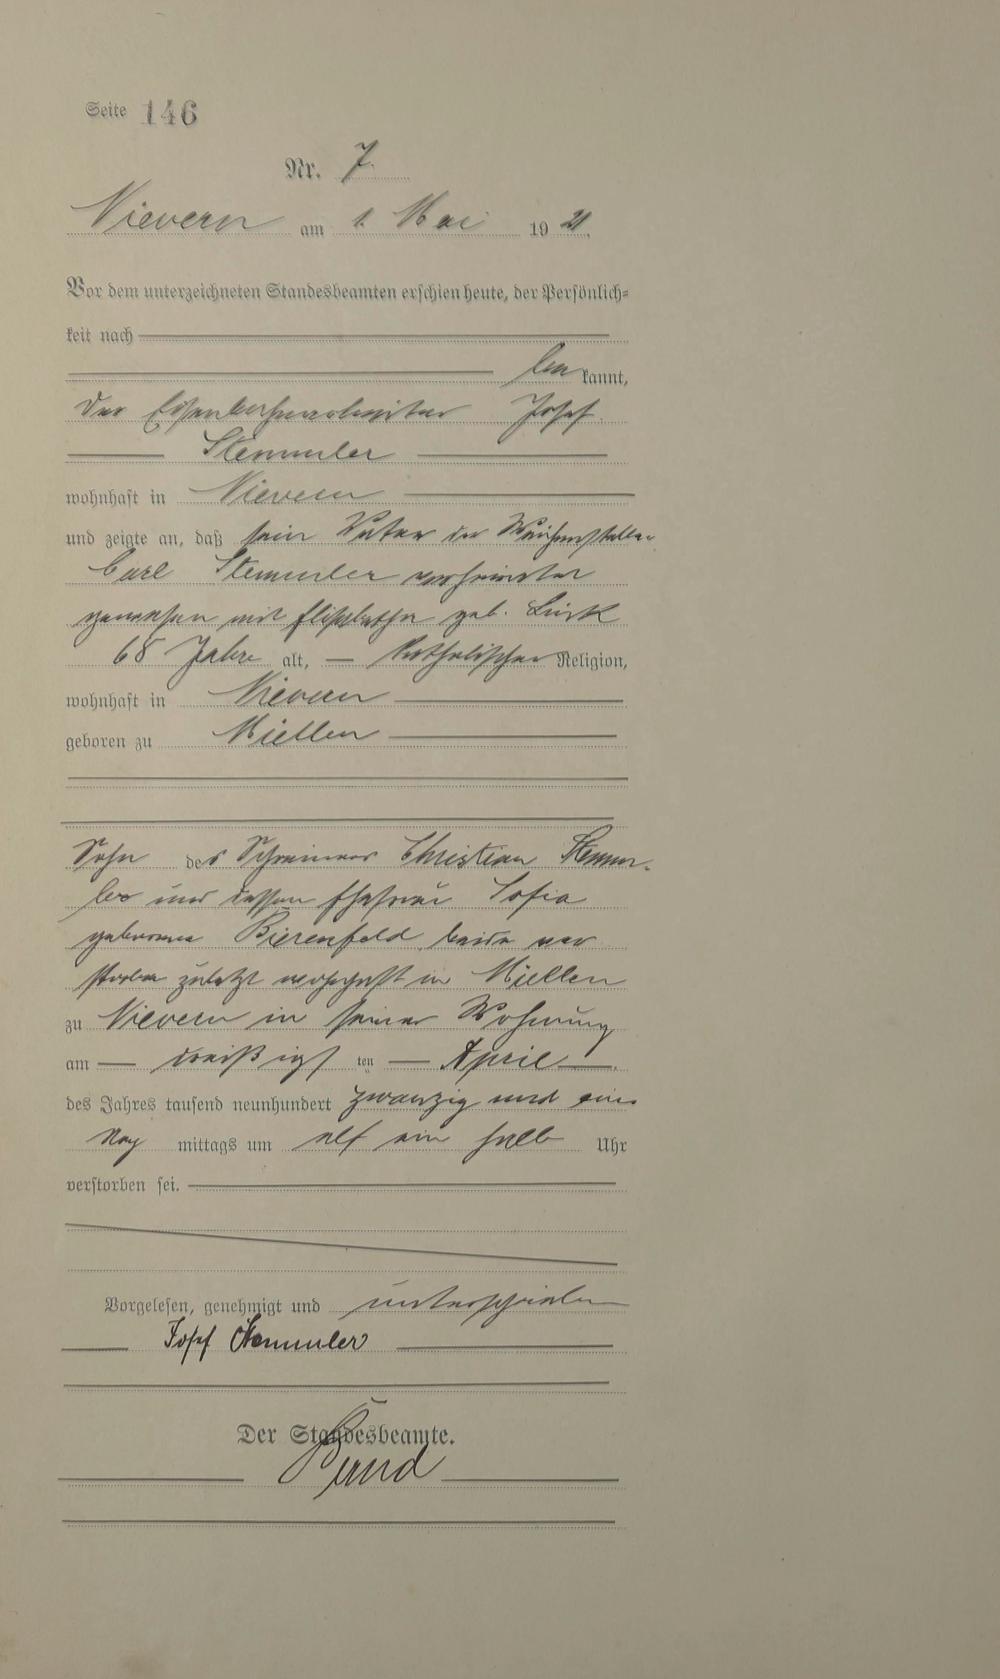 Seite 146
Nr. 7.
Nievern am 1. Mai 19 21.
Vor dem unterzeichneten Standesbeamten erschien heute, der Persönlich=
keit nach
be kannt,
der Eisenbahnarbeiter Josef
Stemmler
wohnhaft in Nievern
und zeigte an, daß sein Vater der Weichensteller
Carl Stemmler verheiratet
gewesen mit Elisabetha geb.
68 Jahre alt, — katholischer Religion,
wohnhaft in Nievern
geboren zu Miellen
Sohn des Schreiners Christian Stemm-
ler und dessen Ehefrau Sofia
geborene Bierenfeld beide ver
storben zuletzt wohnhaft in Miellen
zu Nievern in seiner Wohnung
am — dreißigs ten — April —
des Jahres tausend neunhundert zwanzig und eins
Nach mittags um elf ein halb Uhr
verstorben sei.
Vorgelesen, genehmigt und unterschrieben
Josef Stemmler
Der Standesbeamte.